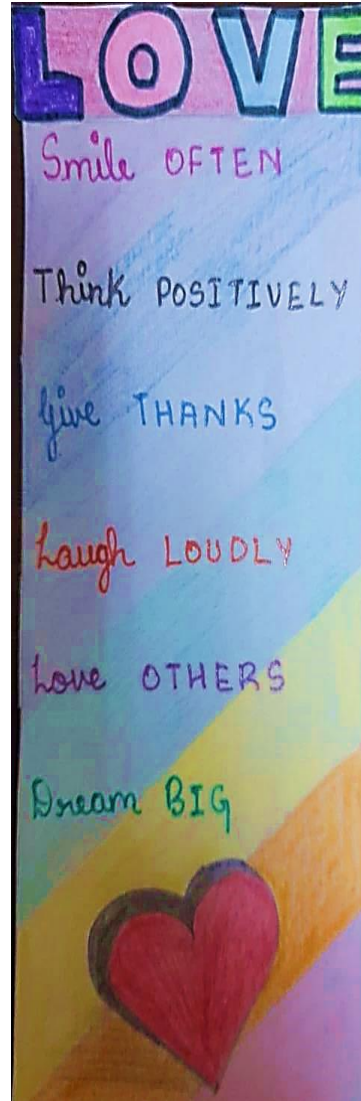 LOVE
Smile OFTEN
Think POSITIVELY
Give THANKS
Laugh LOUDLY
Love OTHERS
Dream BIG